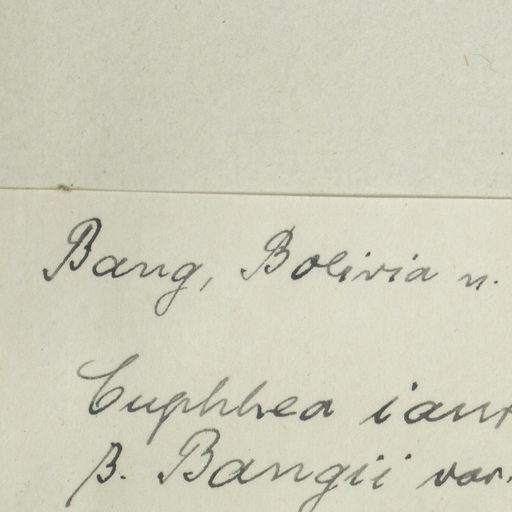 Bang, Bolivia n.
Cuphhea
β. Bangii var.